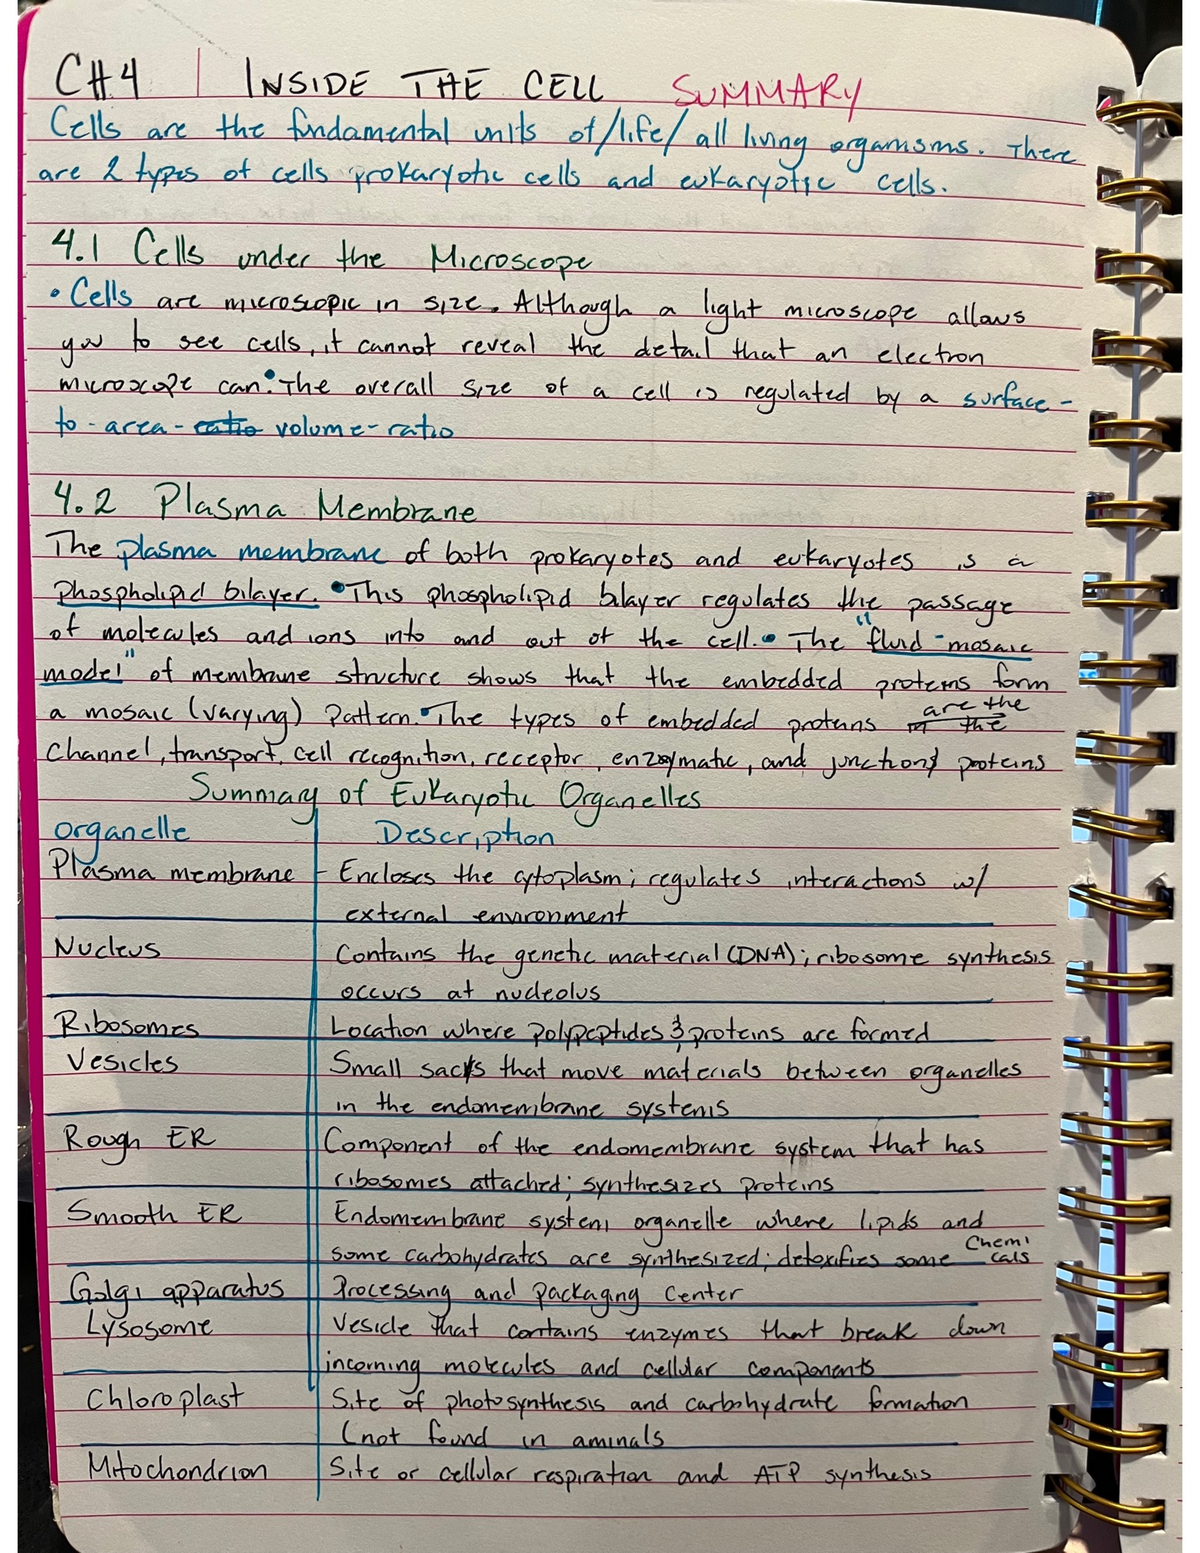 CH4 | INSIDE THE CELL SUMMARY
Cells are the fundamental units of/life/ all living organisms. There
are 2 types of cells prokaryotic cells and eukaryotic cells.
4.1 Cells under the Microscope
• Cells are microscopic in size. Although a light microscope allows
you to see cells, it cannot reveal the detail that an electron
microscope can. • The overall size of a cell is regulated by a surface-
to-area-ratio volume-ratio
4.2 Plasma Membrane
The plasma membrane of both prokaryotes and eukaryotes is a
phospholipid bilayer. • This phospholipid bilayer regulates the passage
of molecules and ions into and out of the cell. • The "fluid-mosaic
model" of membrane structure shows that the embedded proteins form
a mosaic (varying) pattern. • The types of embedded proteins are the
channel, transport, cell recognition, receptor, enzymatic, and junction proteins
Summary of Eukaryotic Organelles
organelle Description
Plasma membrane - Encloses the cytoplasm; regulates interactions w/
external environment
Nucleus Contains the genetic material (DNA); ribosome synthesis
occurs at nucleolus
Ribosomes Location where polypeptides & proteins are formed
Vesicles Small sacs that move materials between organelles
in the endomembrane systems
Rough ER Component of the endomembrane system that has
ribosomes attached; synthesizes proteins
Smooth ER Endomembrane system organelle where lipids and
some carbohydrates are synthesized; detoxifies some chemicals
Golgi apparatus Processing and packaging center
Lysosome Vesicle that contains enzymes that break down
incoming molecules and cellular components
Chloroplast Site of photosynthesis and carbohydrate formation
(not found in aminals
Mitochondrion Site or cellular respiration and ATP synthesis